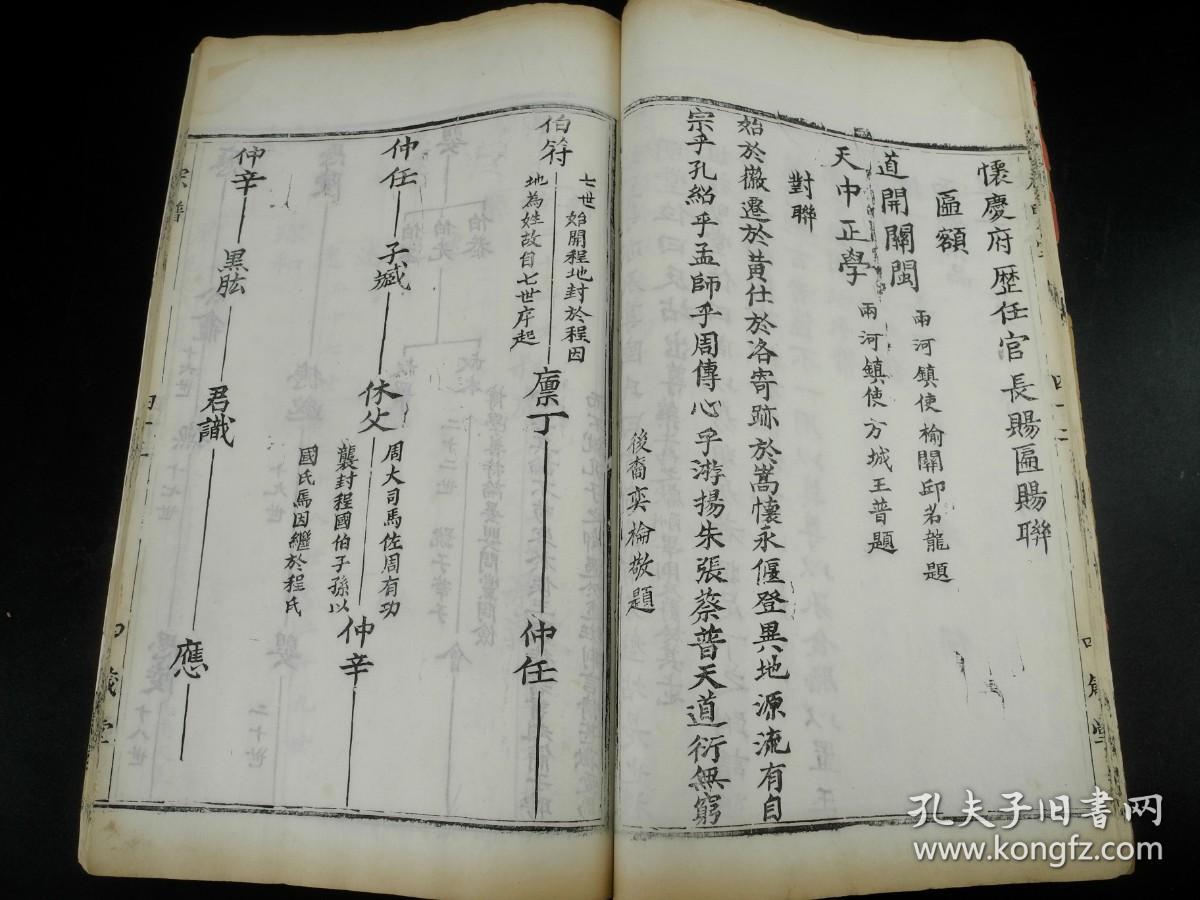 懷慶府歷任官長賜匾賜聯
匾額
道開關閩 兩河鎮使榆關邱若龍題
天中正學 兩河鎮使方城王普題
對聯
始於徽遷於黃仕於洛寄跡於嵩懷永偃登異地源流有自
宗乎孔紹乎孟師乎周傳心乎游揚朱張蔡普天道衍無窮
後裔奕棆敬題
四十二
七世始開程地封於程因
地為姓故自七世序起
伯符 廪丁 仲任
仲任 子娍 休父 仲辛
周大司馬佐周有功
襲封程國伯子孫以
國氏馬因繼於程氏
仲辛 黑肱 君識 應
宗譜
四箴堂
孔夫子旧书网
www.kongfz.com